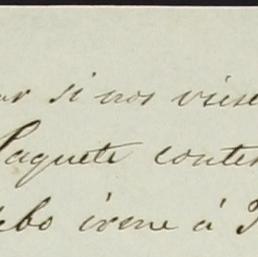 ar si nos viese
Paquete conte
ebo irene á